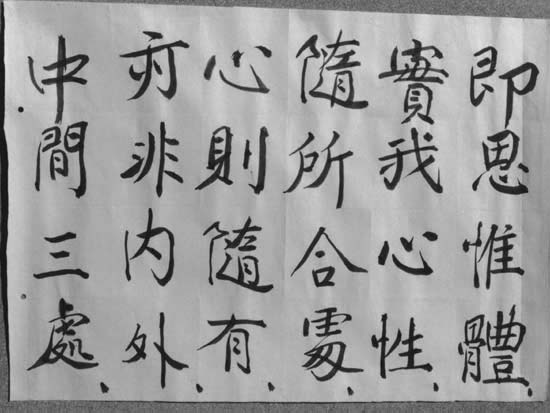 即思惟體、
實我心性、
隨所合處、
心則隨有、
亦非内外、
中間三處、